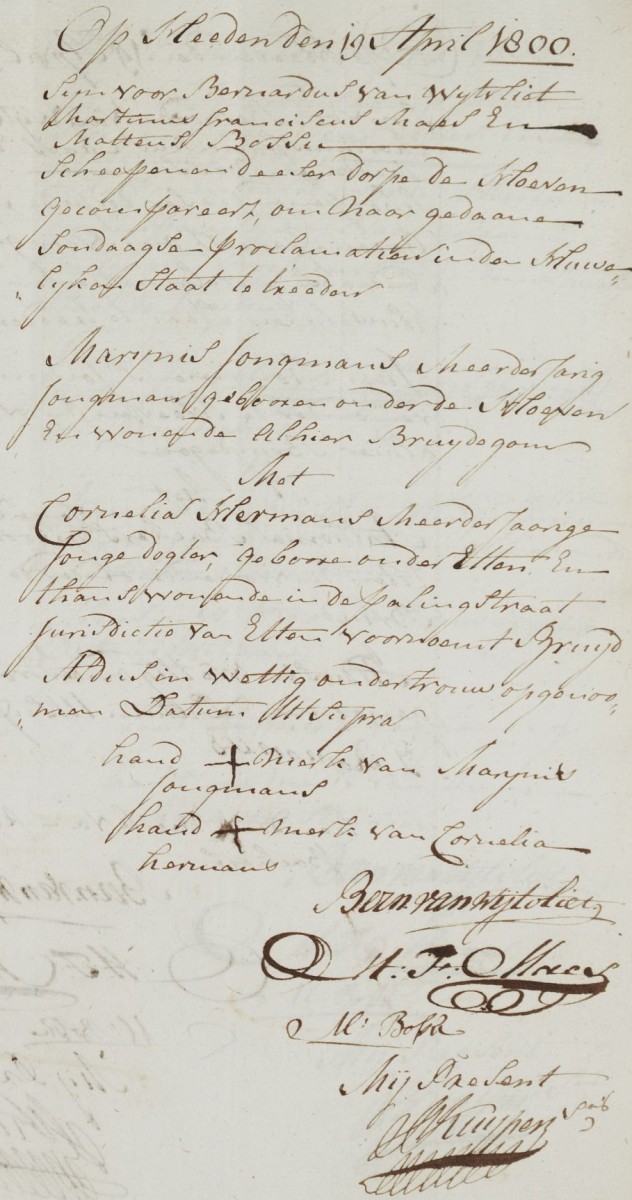 Op Heeden den 19 April 1800.
sijn voor Bernardus van Wijtvliet
Martinus franciscus Maes En
Matteus Bossu
Scheepenen deeser dorpe de Hoeven
gecompareert, om naar gedaane
Sondaagse Proclamatien in den Huwe„
„lyken Staat te treeden
Marynis Jongmans Meerderjarig
Jongman gebooren onder de Hoeven
En wonende Alhier Bruydegom
Met
Cornelia Hermans Meerderjaarige
Jonge dogter, geboore onder Etten En
thans wonende in de palingstraat
Jurisdictie van Etten voornoemt Bruijd
Aldus in wettig ondertrouw opgenoo„
„men Datum Ut Supra
hand + merk van Marynis
Jongmans
hand + merk van Cornelia
hermans
Bern. van wijtvliet
M: Fr: Maes
M: Bossu
Mij Present
Kuypers